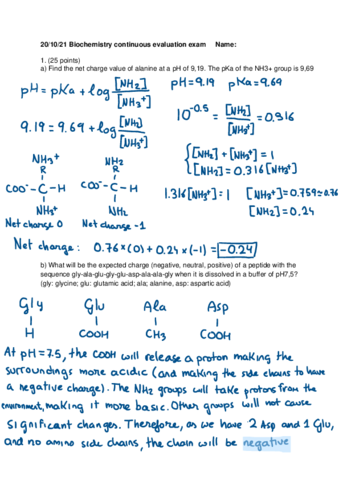 20/10/21 Biochemistry continuous evaluation exam Name:
1. (25 points)
a) Find the net charge value of alanine at a pH of 9,19. The pKa of the NH3+ group is 9,69
pH = pKa + log [NH₂] / [NH₃⁺]
pH = 9.19 pKa = 9.69
9.19 = 9.69 + log [NH₂] / [NH₃⁺]
10^-0.5 = [NH₂] / [NH₃⁺] = 0.316
{ [NH₂] + [NH₃⁺] = 1
[NH₂] = 0.316 [NH₃⁺]
1.316 [NH₃⁺] = 1 [NH₃⁺] = 0.759 ≈ 0.76
[NH₂] = 0.24
NH₃⁺ NH₂
R R
COO⁻ - C - H COO⁻ - C - H
NH₃⁺ NH₂
Net charge 0 Net charge -1
Net charge: 0.76 × (0) + 0.24 × (-1) = -0.24
b) What will be the expected charge (negative, neutral, positive) of a peptide with the
sequence gly-ala-glu-gly-glu-asp-ala-ala-gly when it is dissolved in a buffer of pH7,5?
(gly: glycine; glu: glutamic acid; ala; alanine, asp: aspartic acid)
Gly Glu Ala Asp
H COOH CH₃ COOH
At pH = 7.5, the COOH will release a proton making the
surroundings more acidic (and making the side chains to have
a negative charge). The NH₂ groups will take protons from the
environment, making it more basic. Other groups will not cause
significant changes. Therefore, as we have 2 Asp and 1 Glu,
and no amino side chains, the chain will be negative